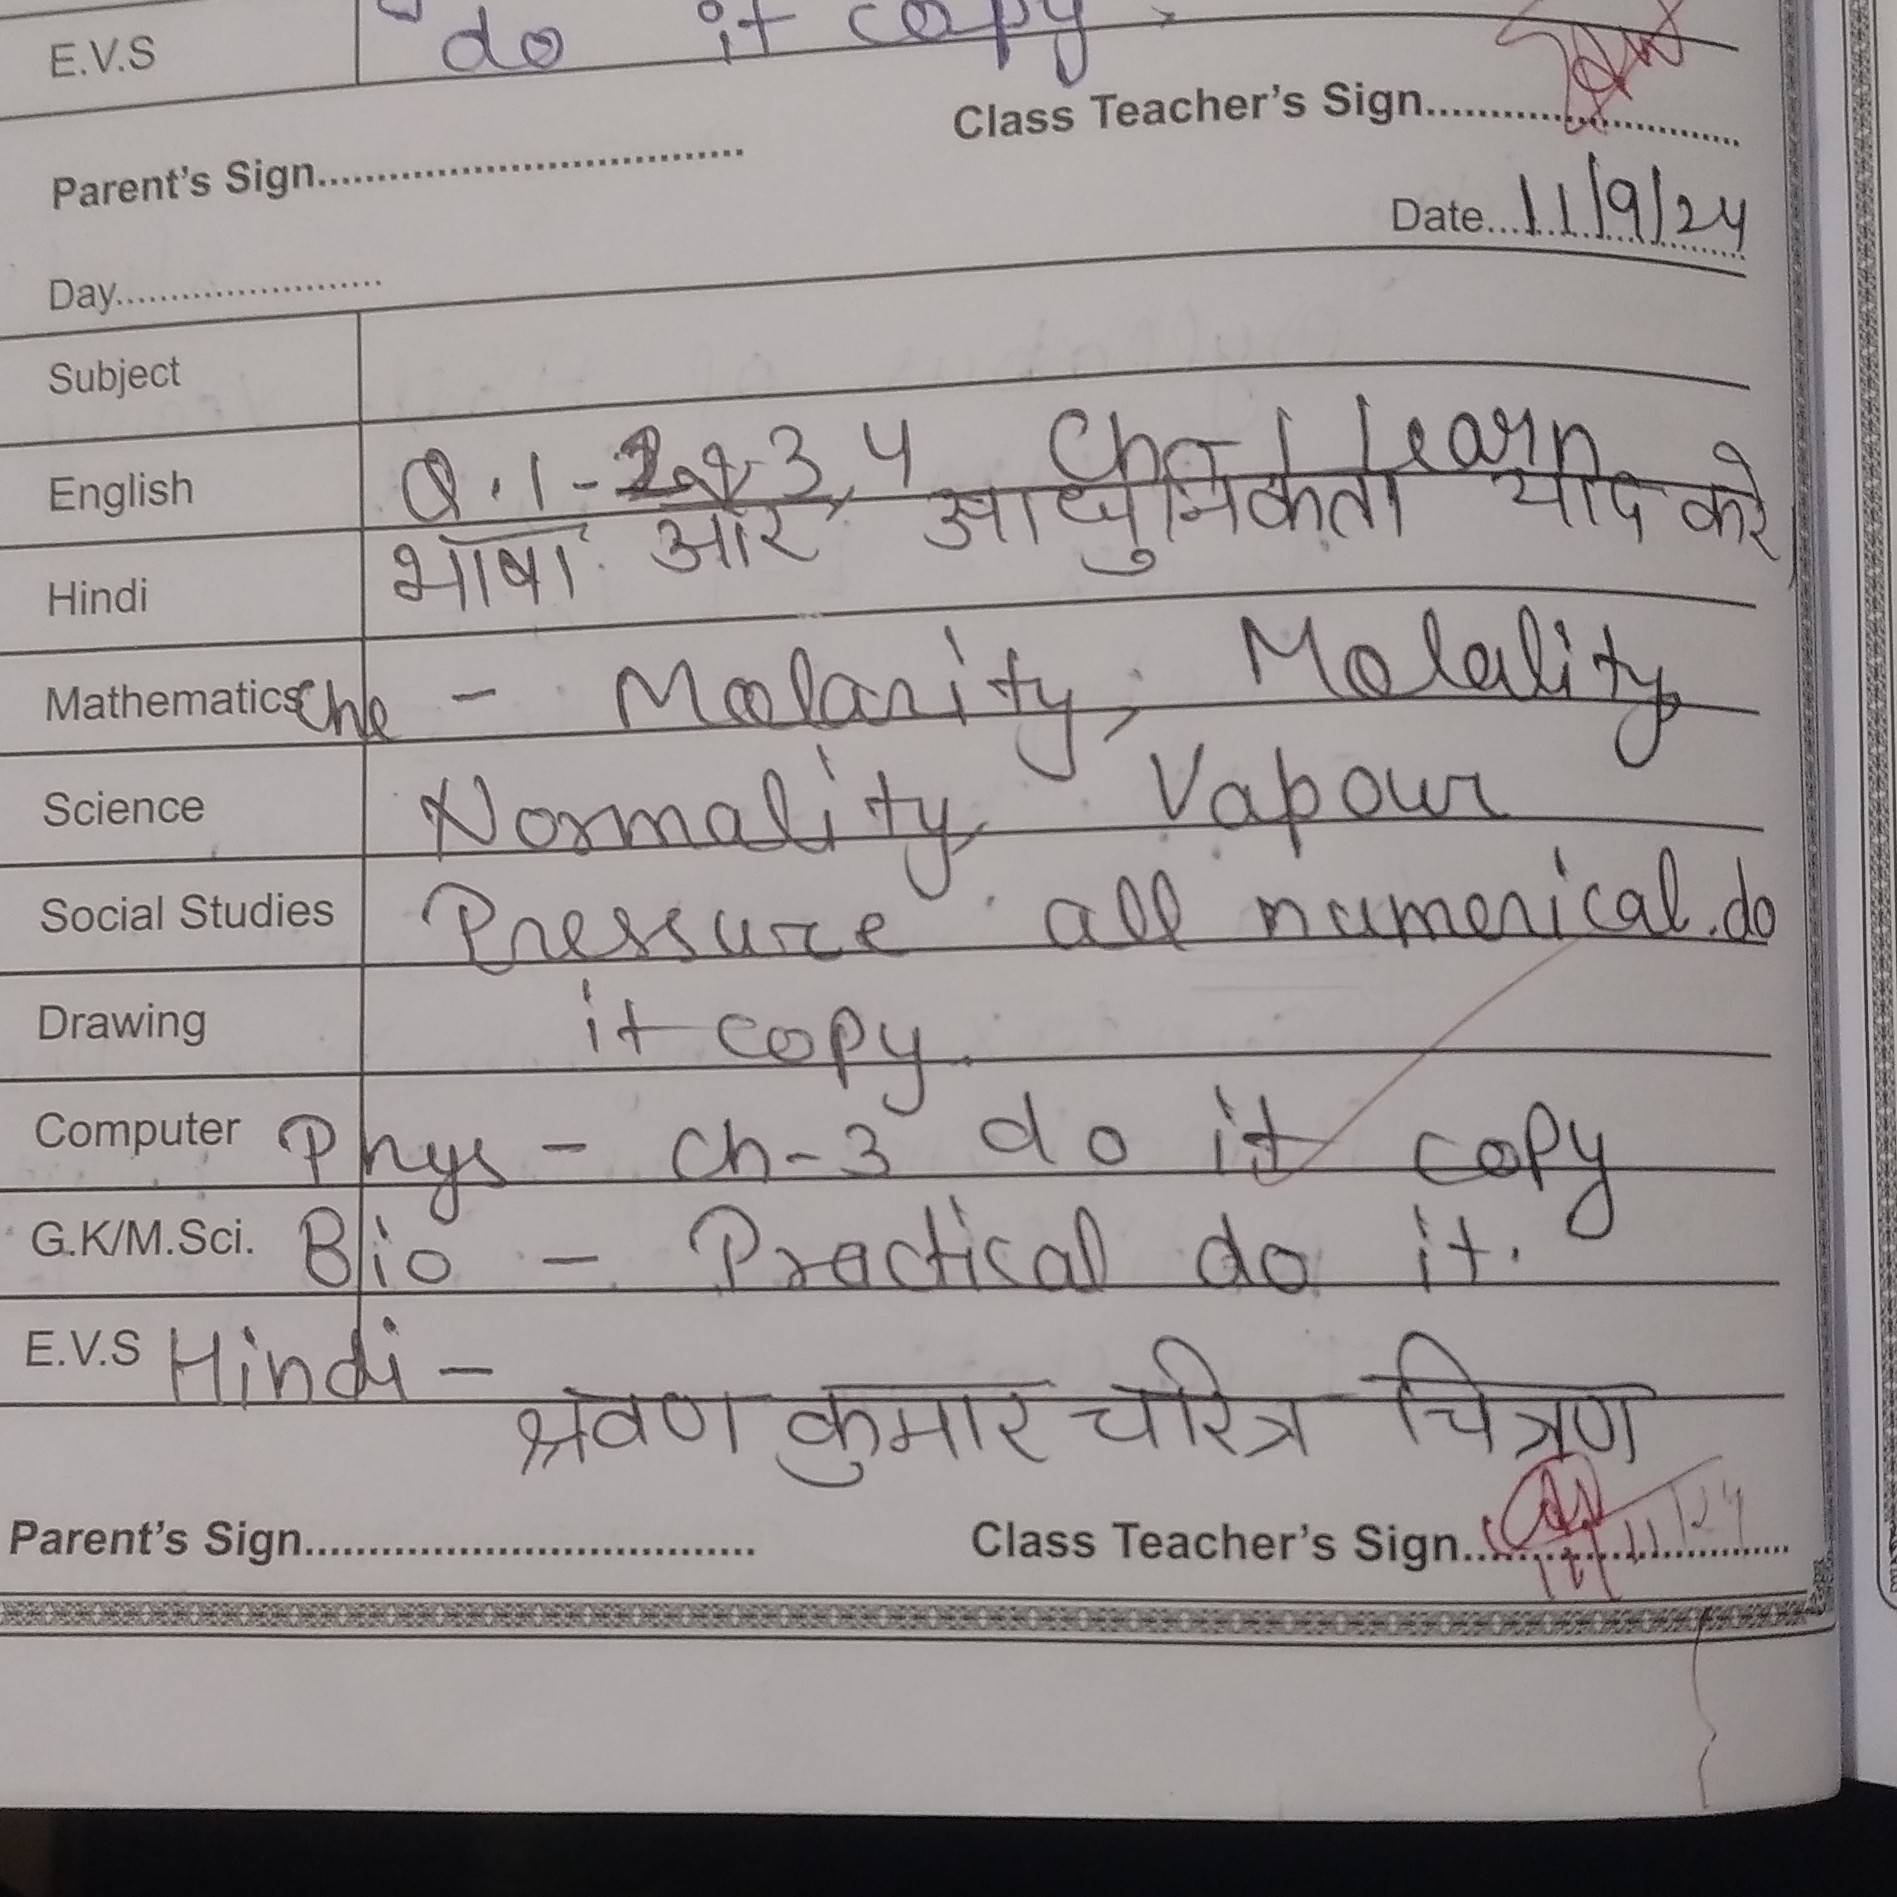 E.V.S do it copy
Class Teacher's Sign
Parent's Sign
Date 11/9/24
Day
Subject
English Q.1- 2, 3, 4 Ch-1 learn
Hindi भाषा और आधुनिकता याद करे
Mathematics Che - Moolarity, Molality,
Science Normality, Vapour
Social Studies Pressure all numerical. do
Drawing it copy.
Computer Phys - Ch-3 do it copy
G.K/M.Sci. Bio - Practical do it.
E.V.S Hindi - श्रवण कुमार चरित्र चित्रण
Parent's Sign Class Teacher's Sign